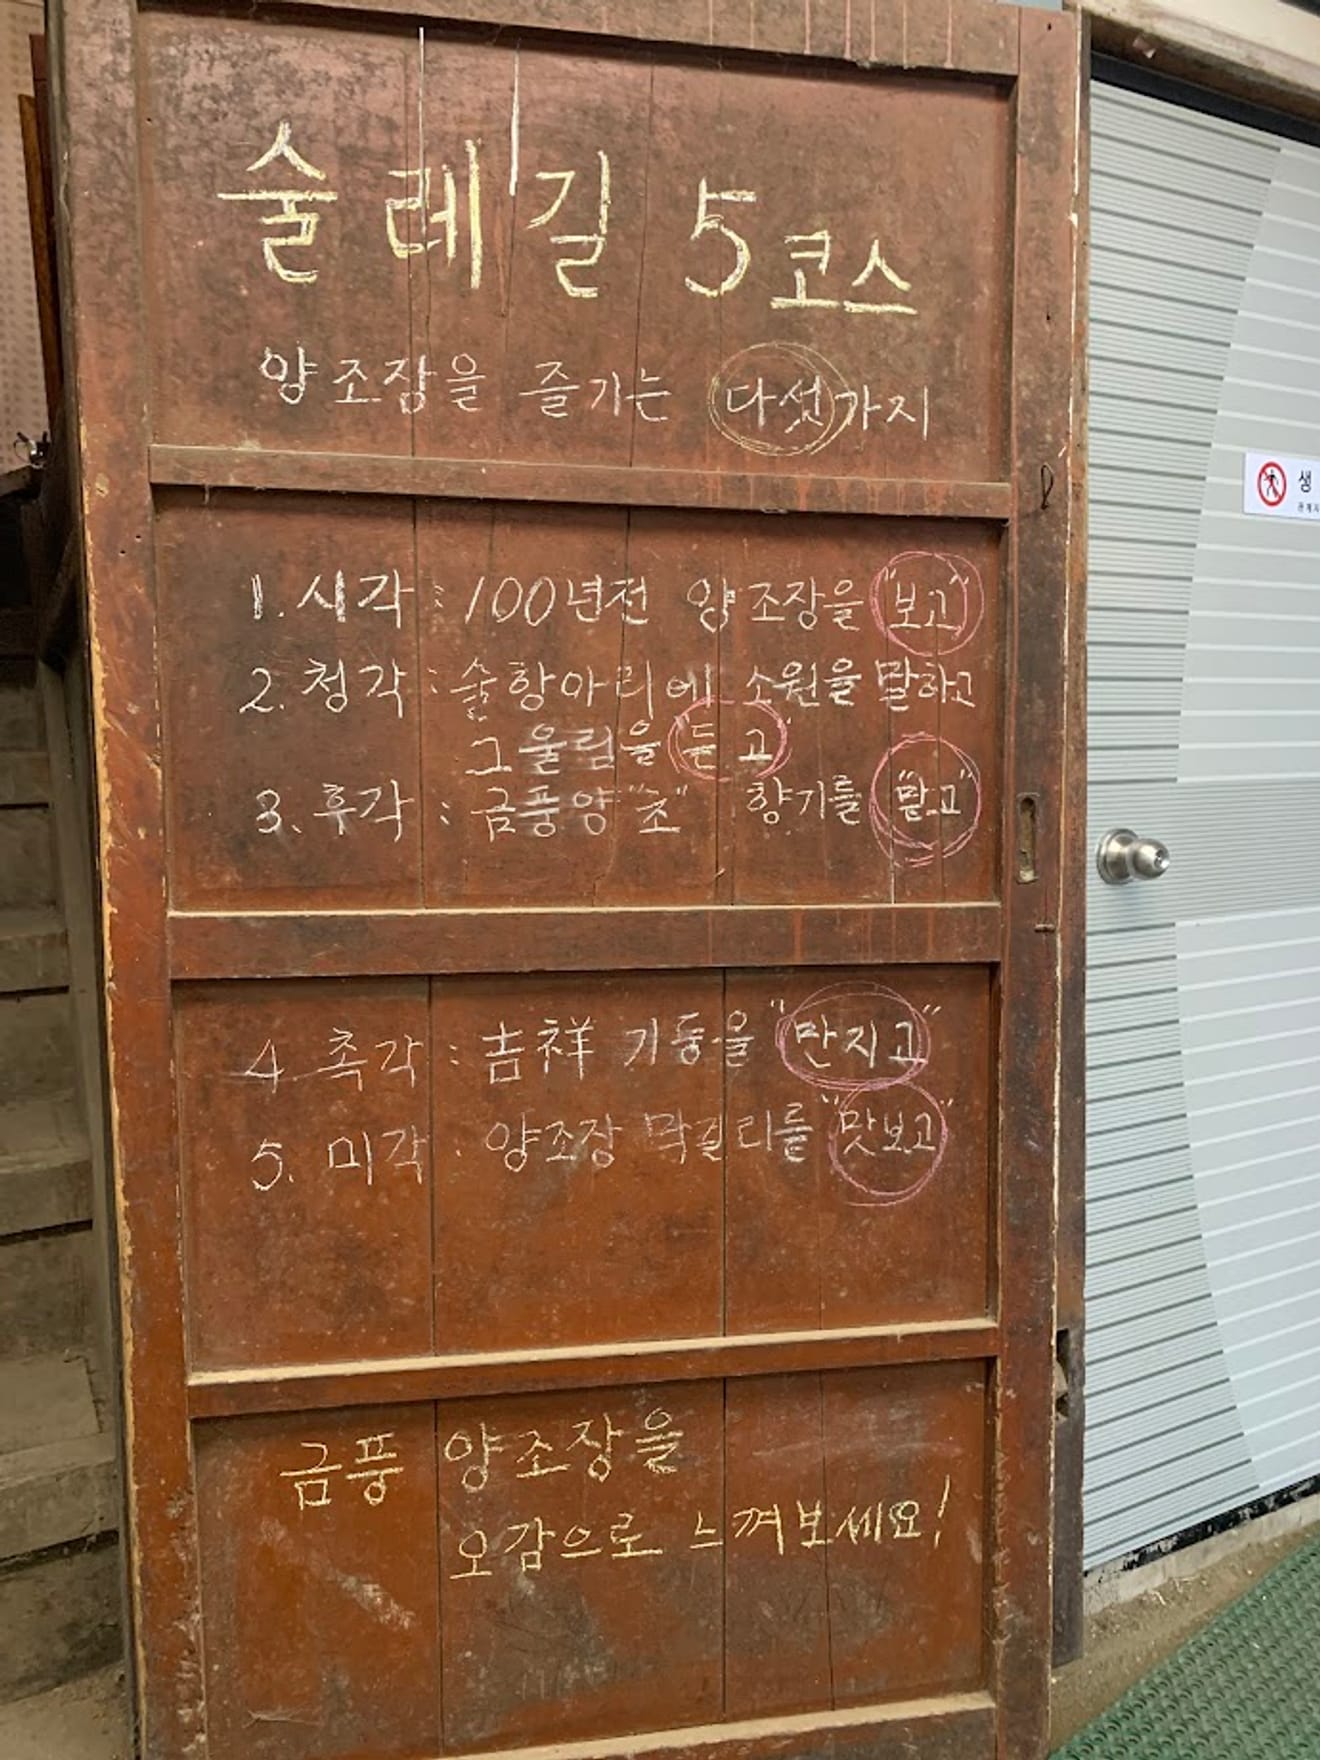 술레길 5코스
양조장을 즐기는 다섯가지
1. 시각 : 100년전 양조장을 "보고"
2. 청각 : 술항아리에 소원을 말하고
그 울림을 "듣고"
3. 후각 : 금풍양"조" 향기를 "맡고"
4 촉각 : 吉祥 기둥을 "만지고"
5. 미각 : 양조장 막걸리를 "맛보고"
금풍 양조장을
오감으로 느껴보세요!
생